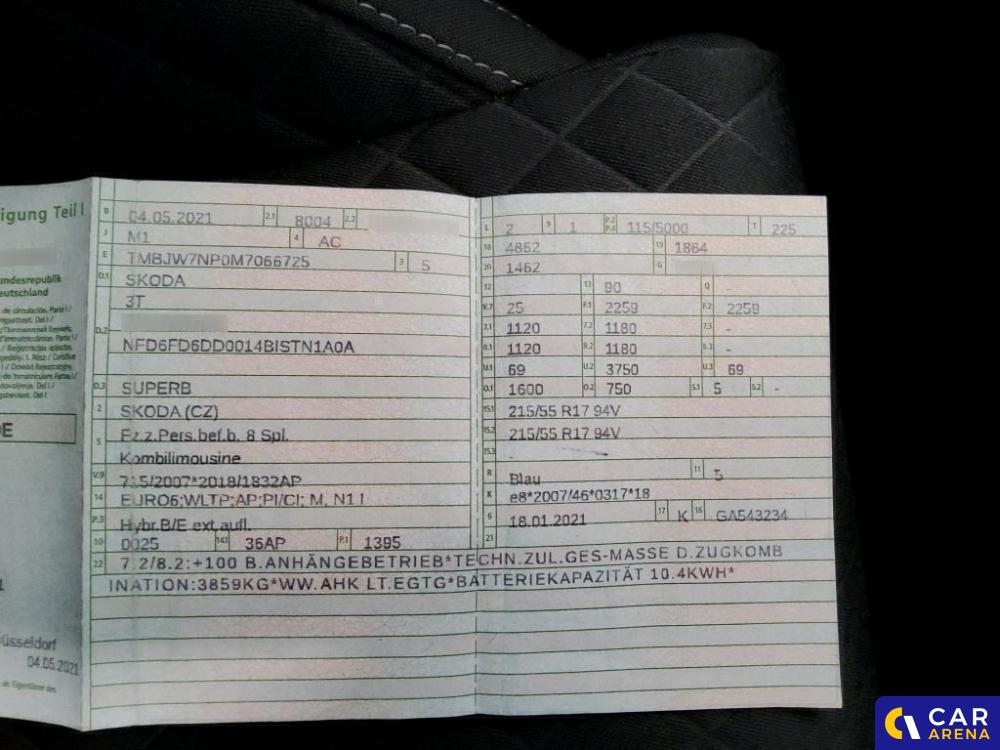 igung Teil I
undesrepublik
eutschland
üsseldorf
04.05.2021
B 04.05.2021 2.1 8004 2.2
J M1 4 AC
E TMBJW7NP0M7066725 3 5
D.1 SKODA
3T
D.2
NFD6FD6DD0014BISTN1A0A
D.3 SUPERB
2 SKODA (CZ)
5 Fz.z.Pers.bef.b. 8 Spl.
Kombilimousine
V.9 715/2007*2018/1832AP
14 EURO6;WLTP;AP;PI/CI; M, N1 I
P.3 Hybr.B/E ext.aufl.
10 0025 14.1 36AP P.1 1395
22 7.2/8.2:+100 B.ANHÄNGEBETRIEB*TECHN.ZUL.GES-MASSE D.ZUGKOMB
INATION:3859KG*WW.AHK LT.EGTG*BATTERIEKAPAZITÄT 10.4KWH*
L 2 9 1 P.2 P.4 115/5000 T 225
18 4862 19 1864
20 1462 G
12 13 90 Q -
V.7 25 F.1 2259 F.2 2259
7.1 1120 7.2 1180 7.3 -
8.1 1120 8.2 1180 8.3 -
U.1 69 U.2 3750 U.3 69
O.1 1600 O.2 750 S.1 5 S.2 -
15.1 215/55 R17 94V
15.2 215/55 R17 94V
15.3 -
R Blau 11 5
K e8*2007/46*0317*18
6 18.01.2021 17 K 16 GA543234
21
CAR
ARENA